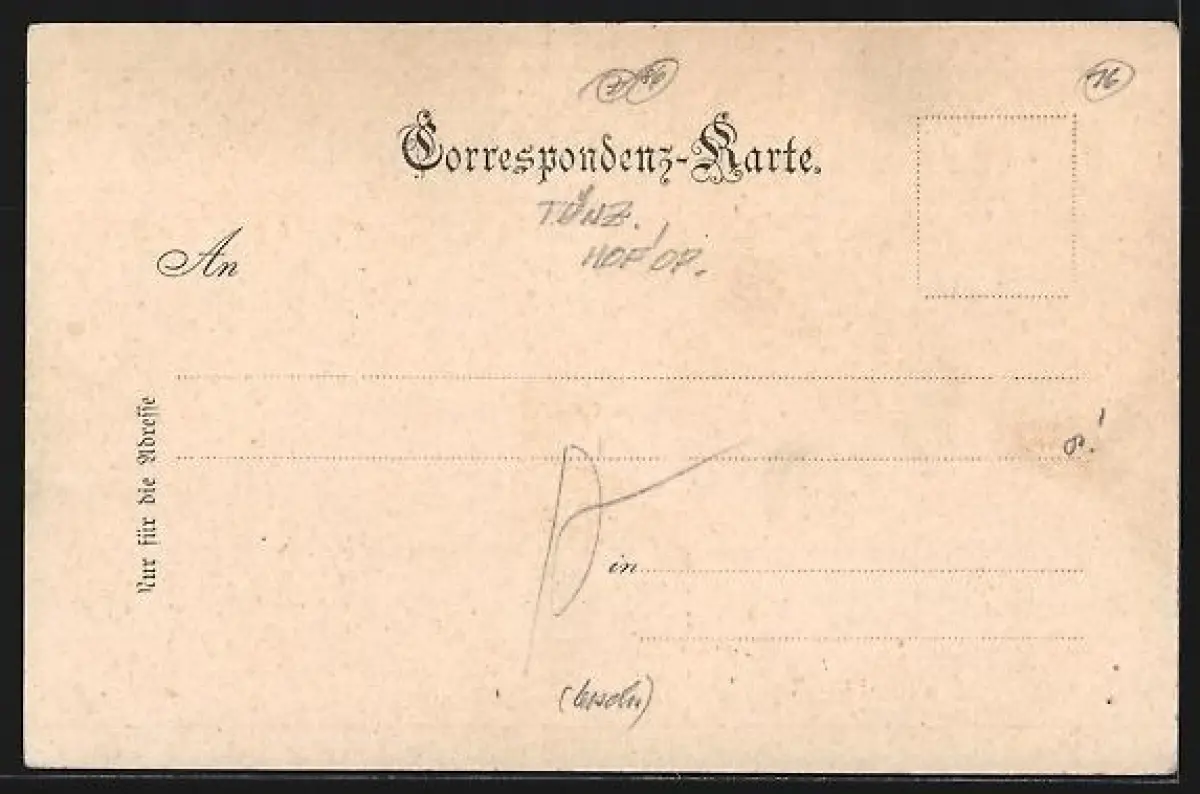 76
Correspondenz-Karte.
TÄNZ.
HOF OP.
An
Nur für die Adresse
in